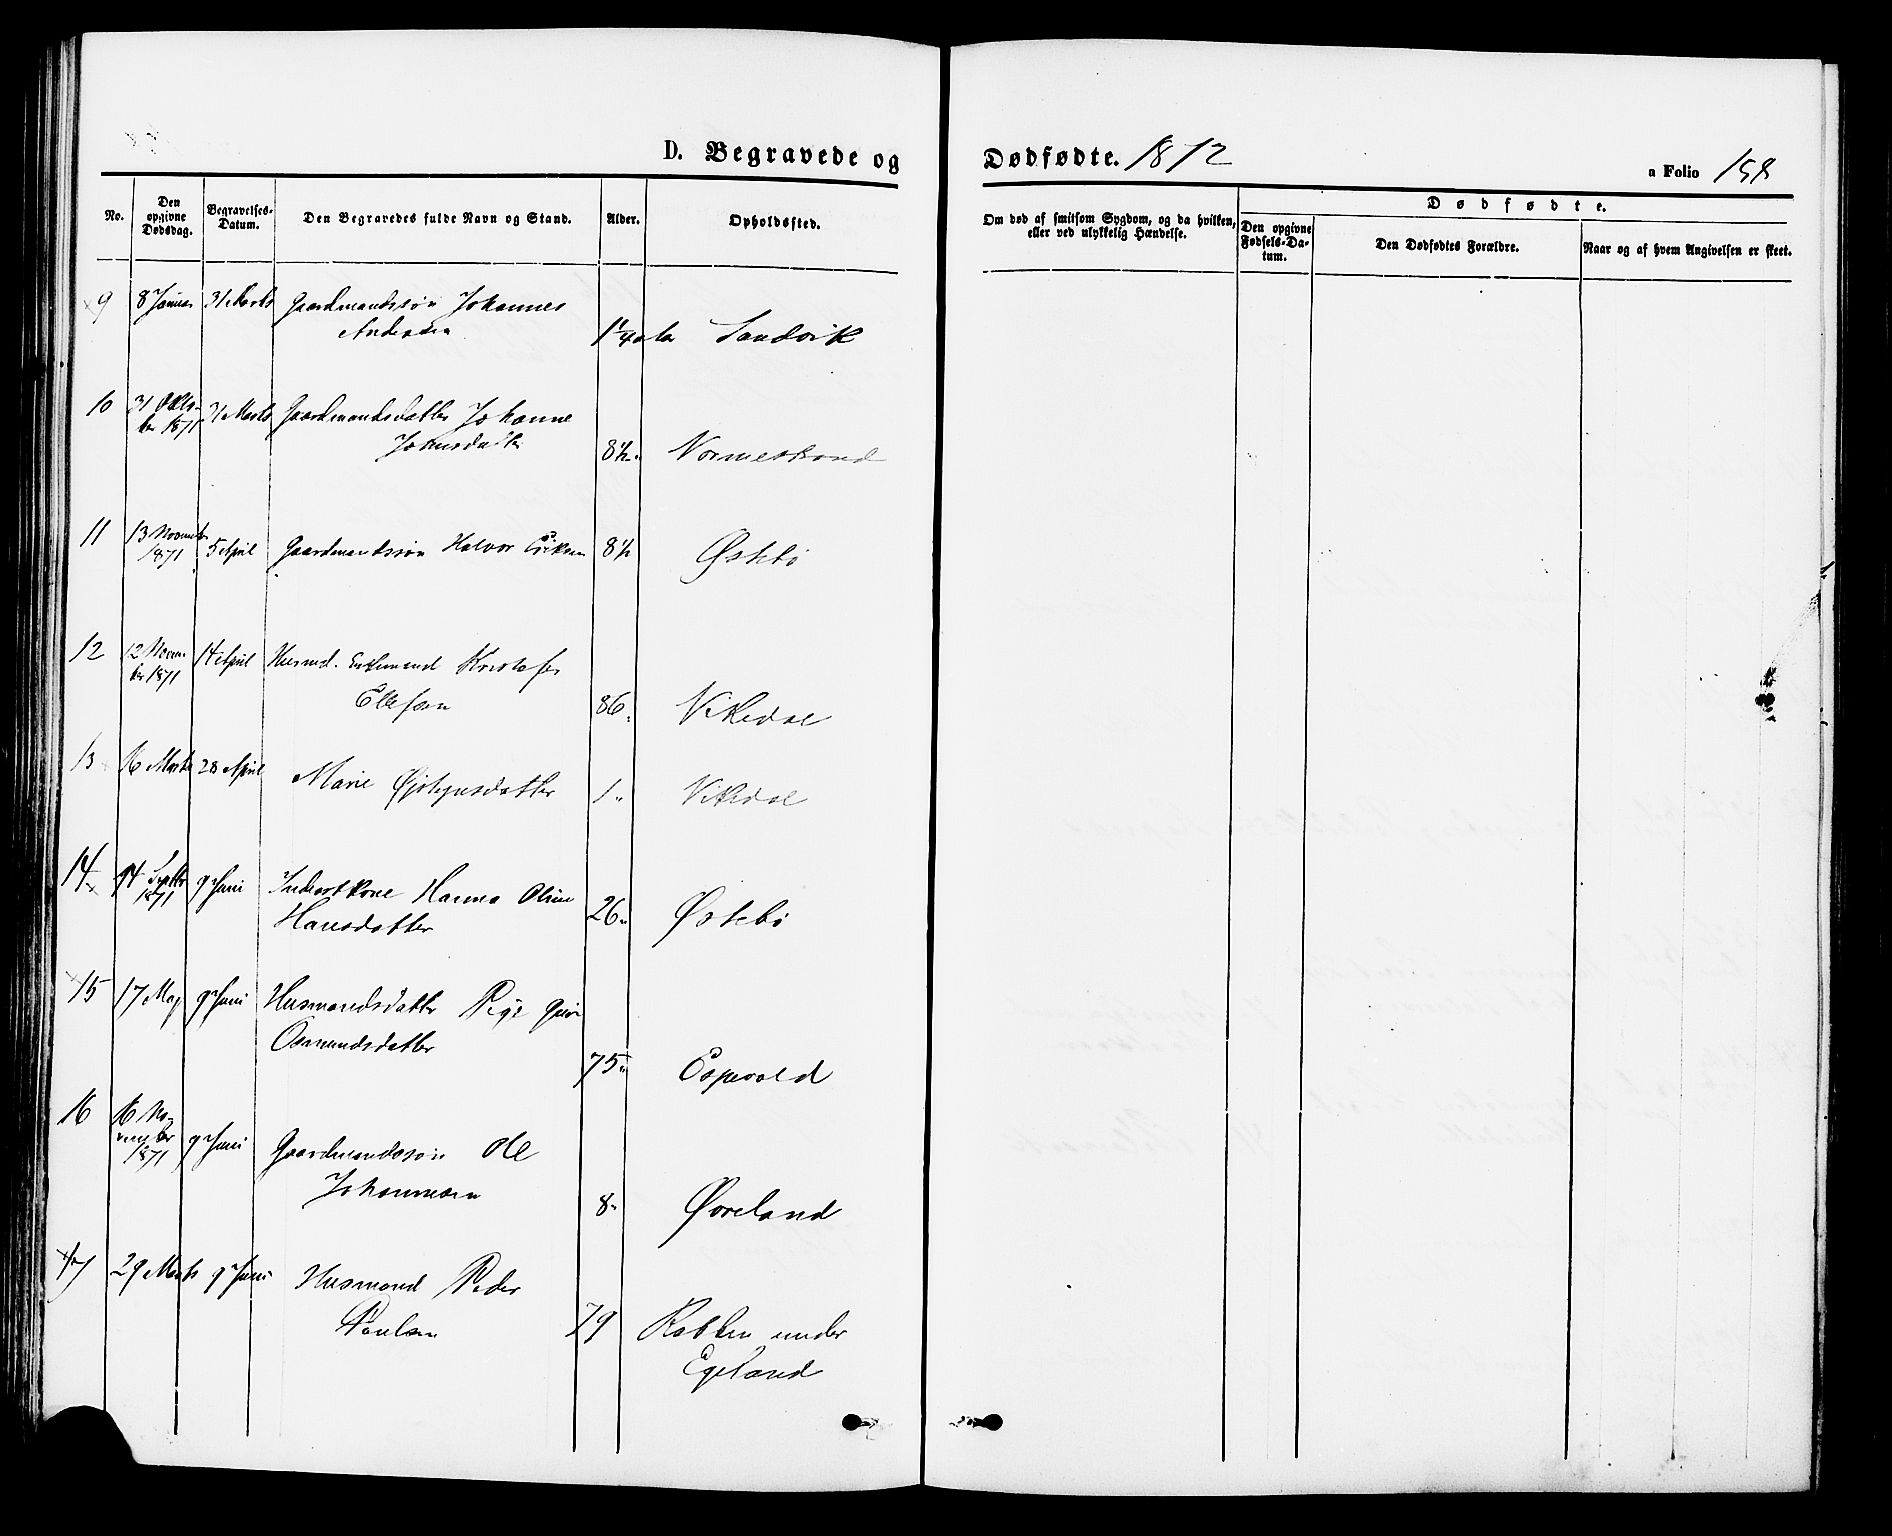 D. Begravede og Dødfødte. 1872
a Folio 158
No.
Den opgivne Dødsdag.
Begravelses-Datum.
Den Begravedes fulde Navn og Stand.
Alder.
Opholdssted.
Om død af smitsom Sygdom, og da hvilken, eller ved ulykkelig Hændelse.
Dødfødte.
Den opgivne Fødsels-Datum.
Den Dødfødtes Forældre.
Naar og af hvem Angivelsen er skeet.
9 8 Januar 31 Marts Gaardmandssøn Johannes
Andersen 1 1/4 Sandvik
10 31 Okto- 31 Marts Gaardmandsdatter Johanne
ber 1871
Johnsdatter 8 1/2 " Vormestrand
11 13 November 5 April Gaardmandssøn Halvor Eriksen 8 1/2 Østebø
1871
12 12 Novem 14 April Husmd. Enkemand Kristofer
ber 1871 Ellefsen 86 " Vikedal
13 16 Marts 28 April Marie datter 1 " Vikedal
14 14 Septbr 9 Juni Inderstkone Hanna Oline
1871 Hansdatter 26 " Østebø
15 17 Maj 9 Juni Husmandsdatter Pige Guri
Osmundsdatter 75 " Espevold
16 16 No- 9 Juni Gaardmandssøn Ole
vember
1871
Johannesen 8 " Øvreland
17 29 Marts 9 Juni Husmand Peder
Poulsen 79 Rabben under
Egeland